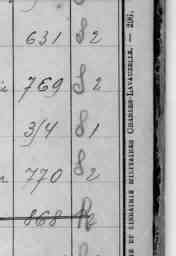 631 S 2
769 S 2
3/4 S 1
770 S 2
868
ET LIBRAIRIE MILITAIRES CHARLES-LAVAUZELLE. — 296.